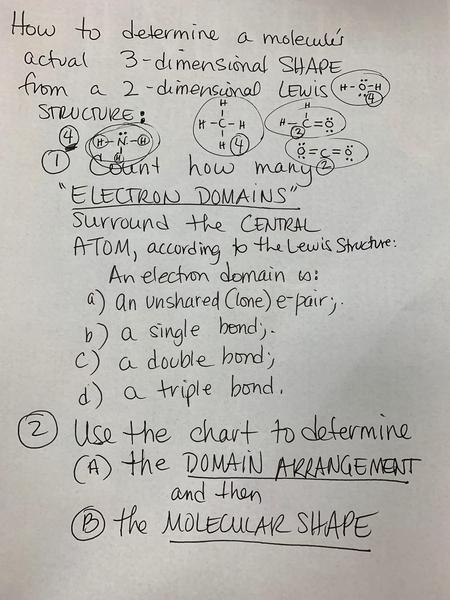 How to determine a molecule's
actual 3-dimensional SHAPE
from a 2-dimensional LEWIS H-Ö-H 4
STRUCTURE:
H
H-C-H 4
H
H
H-C=Ö 3
4 H-N̈-H
H
Ö=C=Ö 2
① Count how many
"ELECTRON DOMAINS"
surround the CENTRAL
ATOM, according to the Lewis Structure:
An electron domain is:
a) an unshared (lone) e-pair;
b) a single bond;
c) a double bond;
d) a triple bond.
② Use the chart to determine
(A) the DOMAIN ARRANGEMENT
and then
Ⓑ the MOLECULAR SHAPE